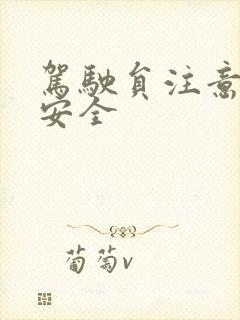 駕駛負注意
安全
葡萄v